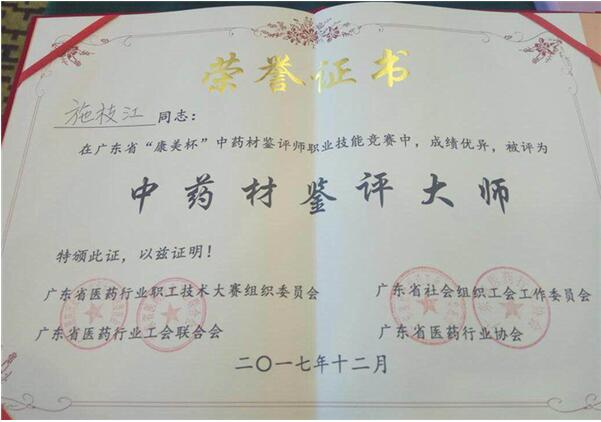 荣誉证书
施枝江 同志：
在广东省“康美杯”中药材鉴评师职业技能竞赛中，成绩优异，被评为
中药材鉴评大师
特颁此证，以兹证明！
广东省医药行业职工技术大赛组织委员会
广东省社会组织工会工作委员会
广东省医药行业工会联合会
广东省医药行业协会
二〇一七年十二月